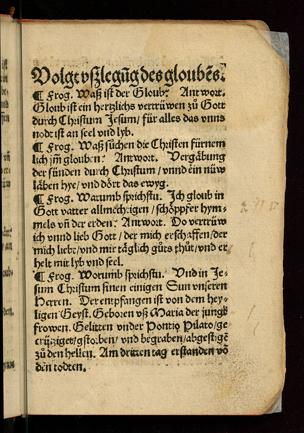 Volgt vßlegūg des gloubēs.
¶ Frog. Waß ist der Gloub? Antwort.
Gloub ist ein hertzlichs vertrüwen zů Gott
durch Christum Jesum / für alles das vnns
nodt ist an seel vnd lyb.
¶ Frog. Waß süchen die Christen fürnem
lich jm̄ glouben: Antwort. Vergäbung
der sünden durch Christum / vnnd ein nüw
läben hye / vnd dört das ewyg.
¶ Frog. Warumb sprichstu. Ich gloub in
Gott vatter allmechtigen / schöpffer hym-
mels vn̄ der erden: Antwort. Do vertrüw
ich vnnd lieb Gott / der mich erschaffen / der
mich liebt / vnd mir täglich gůts thůt / vnd er
helt mit lyb vnd seel.
¶ Frog. Worumb sprichstu. Vnd in Je-
sum Christum sinen einigen Sun vnseren
Herren. Der entpfangen ist von dem hey-
ligen Geyst. Geboren vß Maria der jungk
frowen. Gelitten vnder Pontio Pilato / ge
crützigt / gstorben / vnd begraben / abgestigē
zů den hellen. Am dritten tag erstanden vō
den todten.